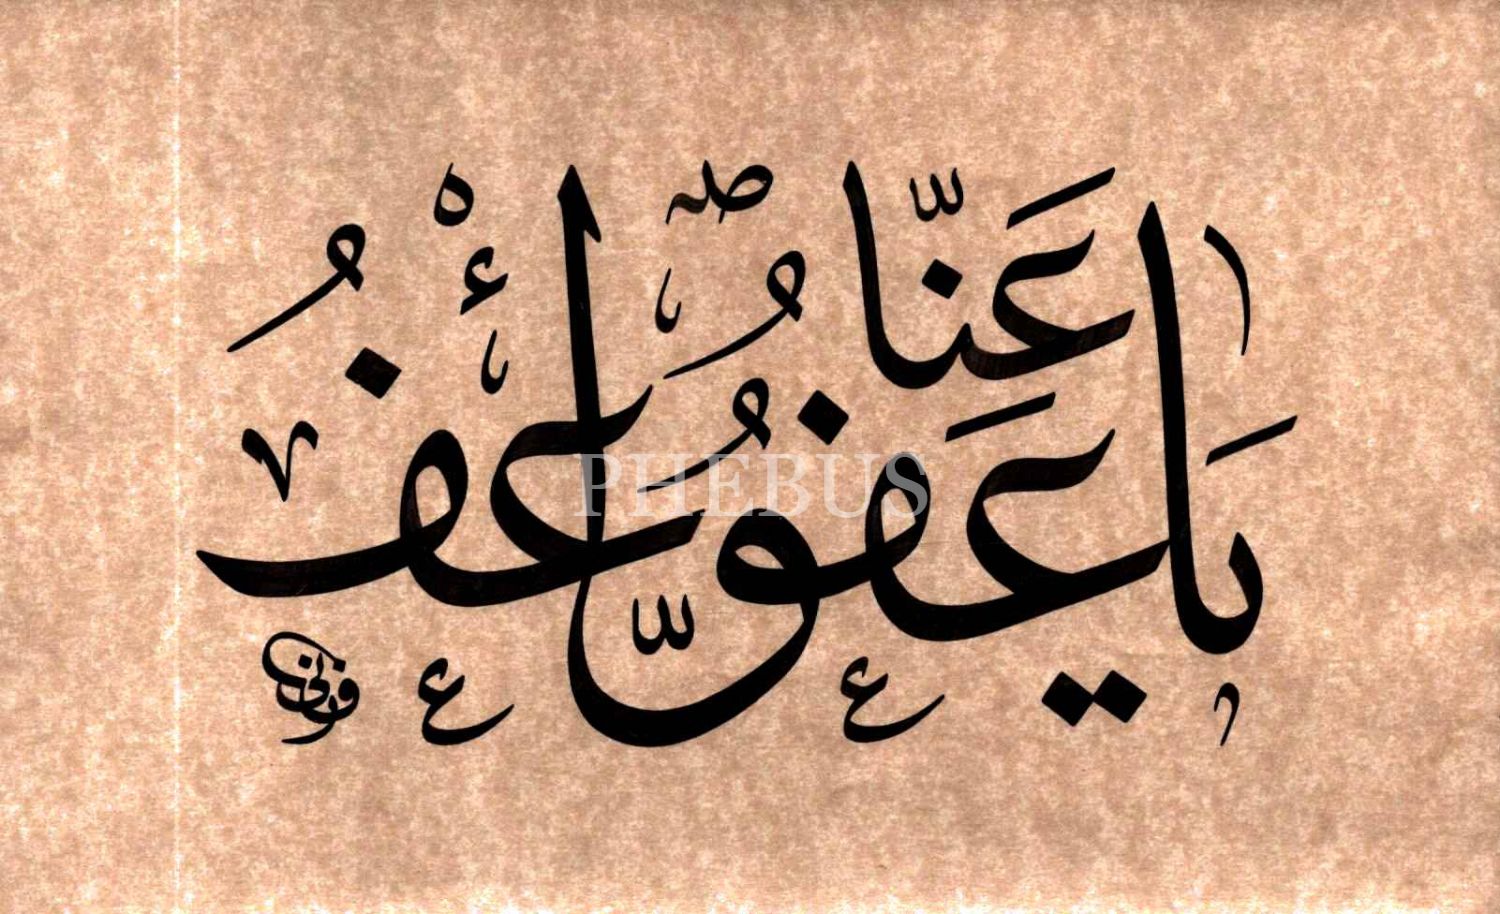 يَا عَفُوُّ اُعْفُ عَنَّا
PHEBUS